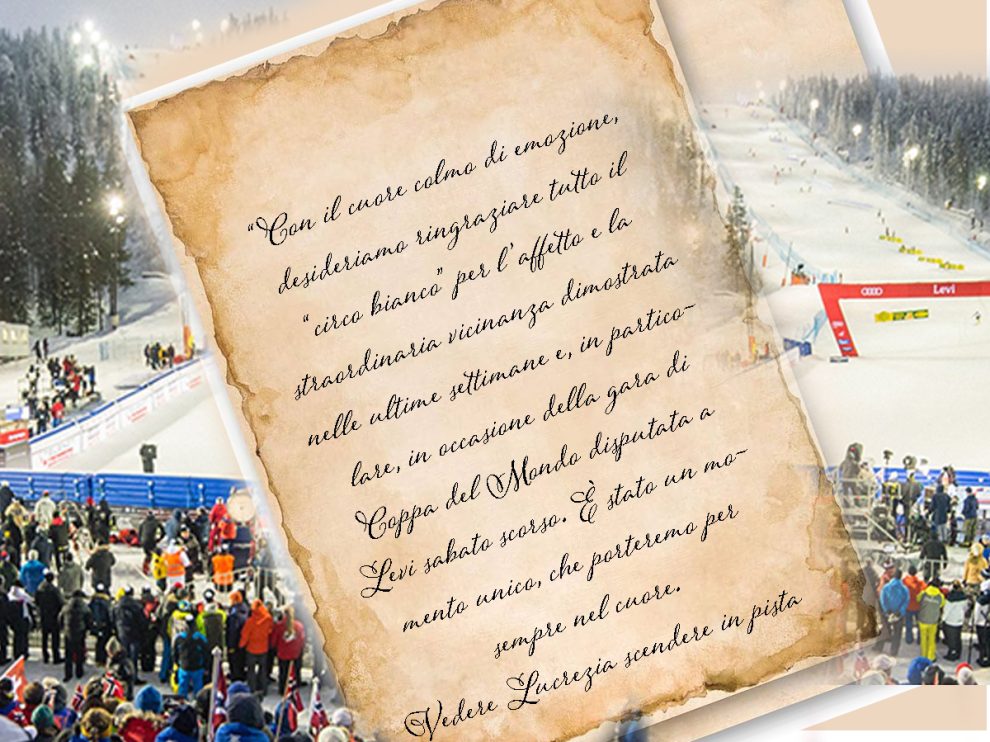 “Con il cuore colmo di emozione,
desideriamo ringraziare tutto il
“circo bianco” per l’affetto e la
straordinaria vicinanza dimostrata
nelle ultime settimane e, in partico-
lare, in occasione della gara di
Coppa del Mondo disputata a
Levi sabato scorso. È stato un mo-
mento unico, che porteremo per
sempre nel cuore.
Vedere Lucrezia scendere in pista
Levi